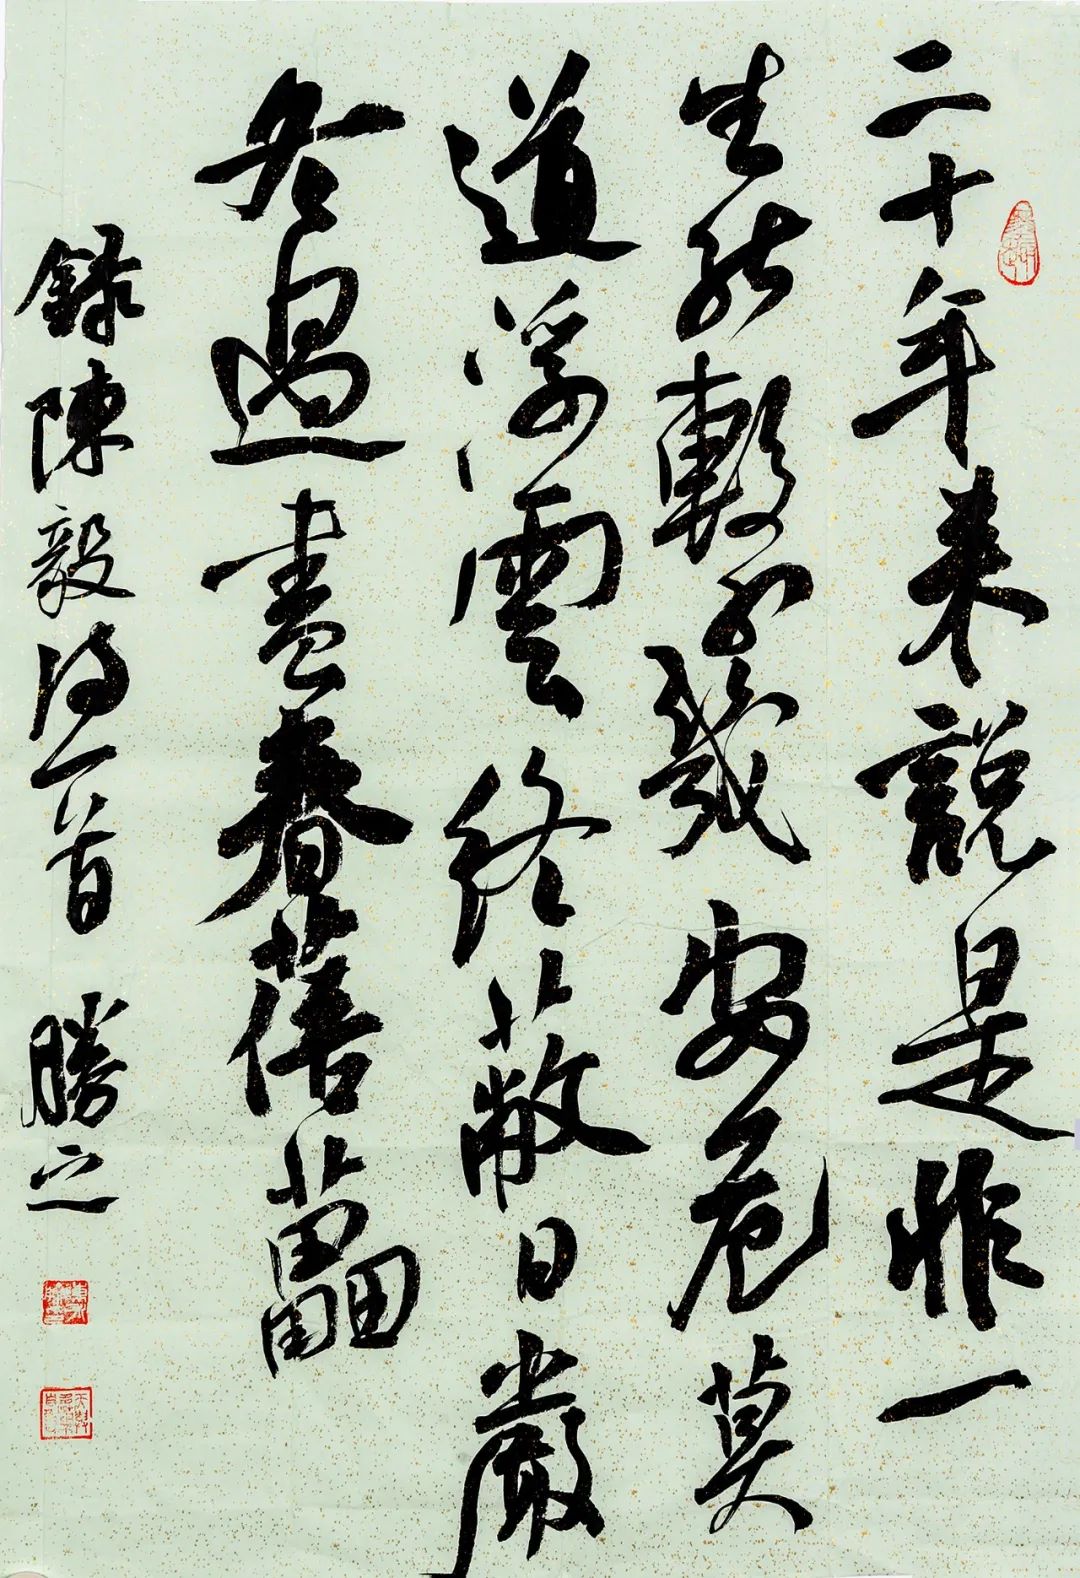 二十年来說是非一
生能繫幾安危莫
道浮雲終蔽日嚴
冬過盡春蓓蕾
録陳毅詩一首 勝之